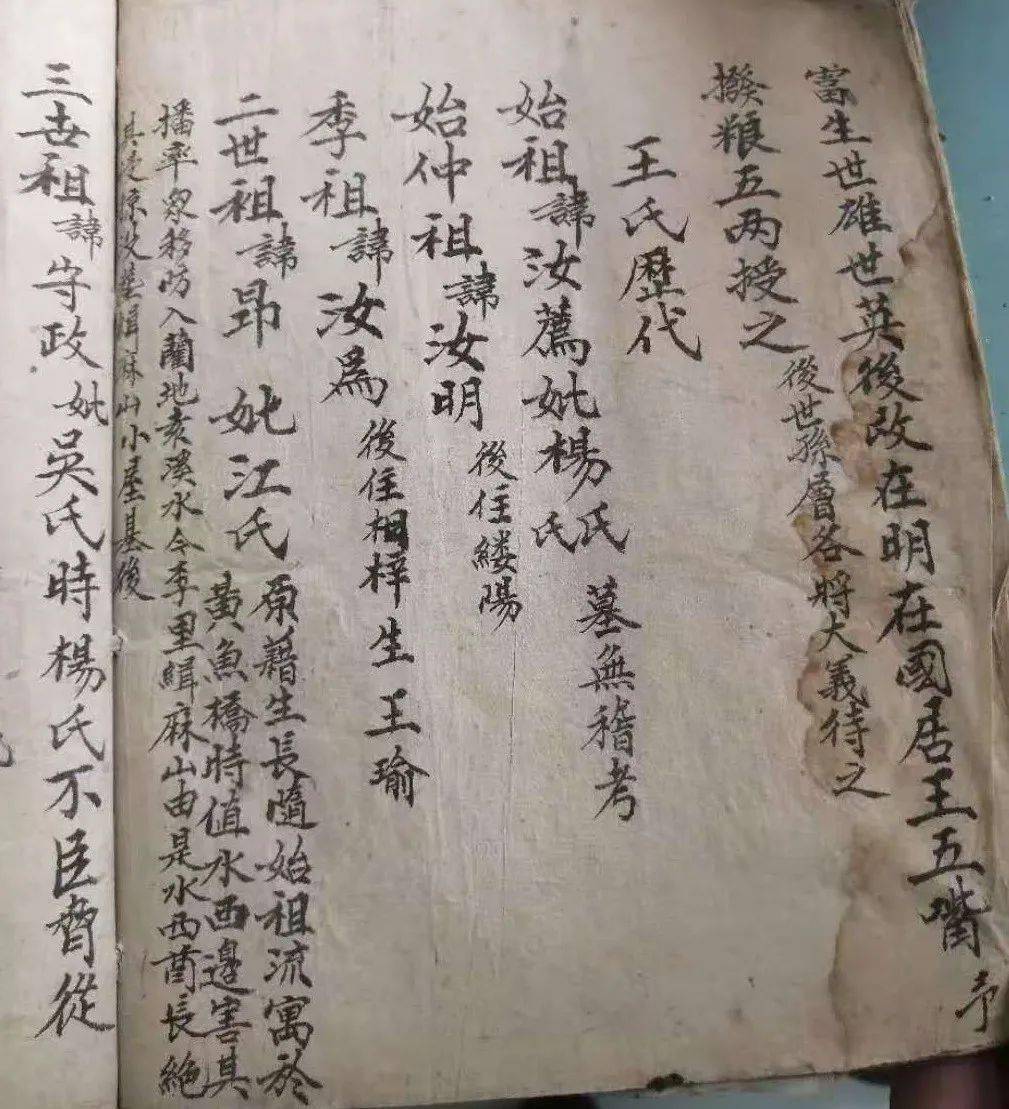 富生世雄世英後改在明在國居王五嘴予
撥粮五两授之後世孫層各將大義待之
王氏歷代
始祖諱汝薦妣楊氏氏墓無稽考
始仲祖諱汝明後住緩陽
季祖諱汝爲後住相梓生王瑜
二世祖諱昂妣江氏原籍生長隨始祖流寓於
黃魚橋時值水西邊害其
播率眾移防入藺地袁溪水令李里緝麻山由是水西酋長絶
其後墓緝麻山小屋基後
三世祖諱守政妣吳氏時楊氏不臣脅從